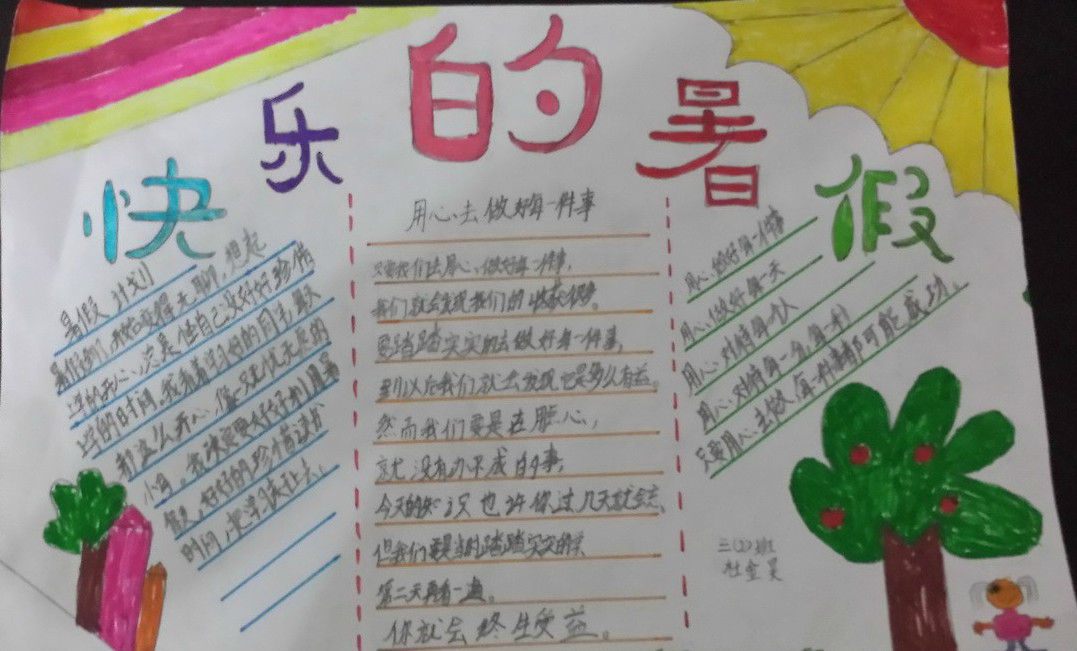 快乐的暑假
暑假计划
暑假到了,我始变得无聊,想起
上学的开心,总是怪自己没好好珍惜
上学的时间。我有着说好的同志,最天
和这么开心,像一只无忧无虑的
小鸟。我决定要好好利用暑
假,好好的珍惜读书
时间,把学习读上去。
用心去做好每一件事
只要我们去用心、做好每一件事,
我们就会发现我们的收获很多。
要踏踏实实的去做好每一件事,
到以后我们就去发现它是多么有益。
然而我们要是在用心,
就没有办不成的事,
今天的知识也许你过几天就会忘,
但我们要是当时踏踏实实的学
第二天再看一遍。
你就会终生受益。
用心做好每一件事
用心做好每一天
用心对待每一个人
用心对待每一名,每一利
只要用心去做,每一件事都可能成功。
三(2)班
杜金昊